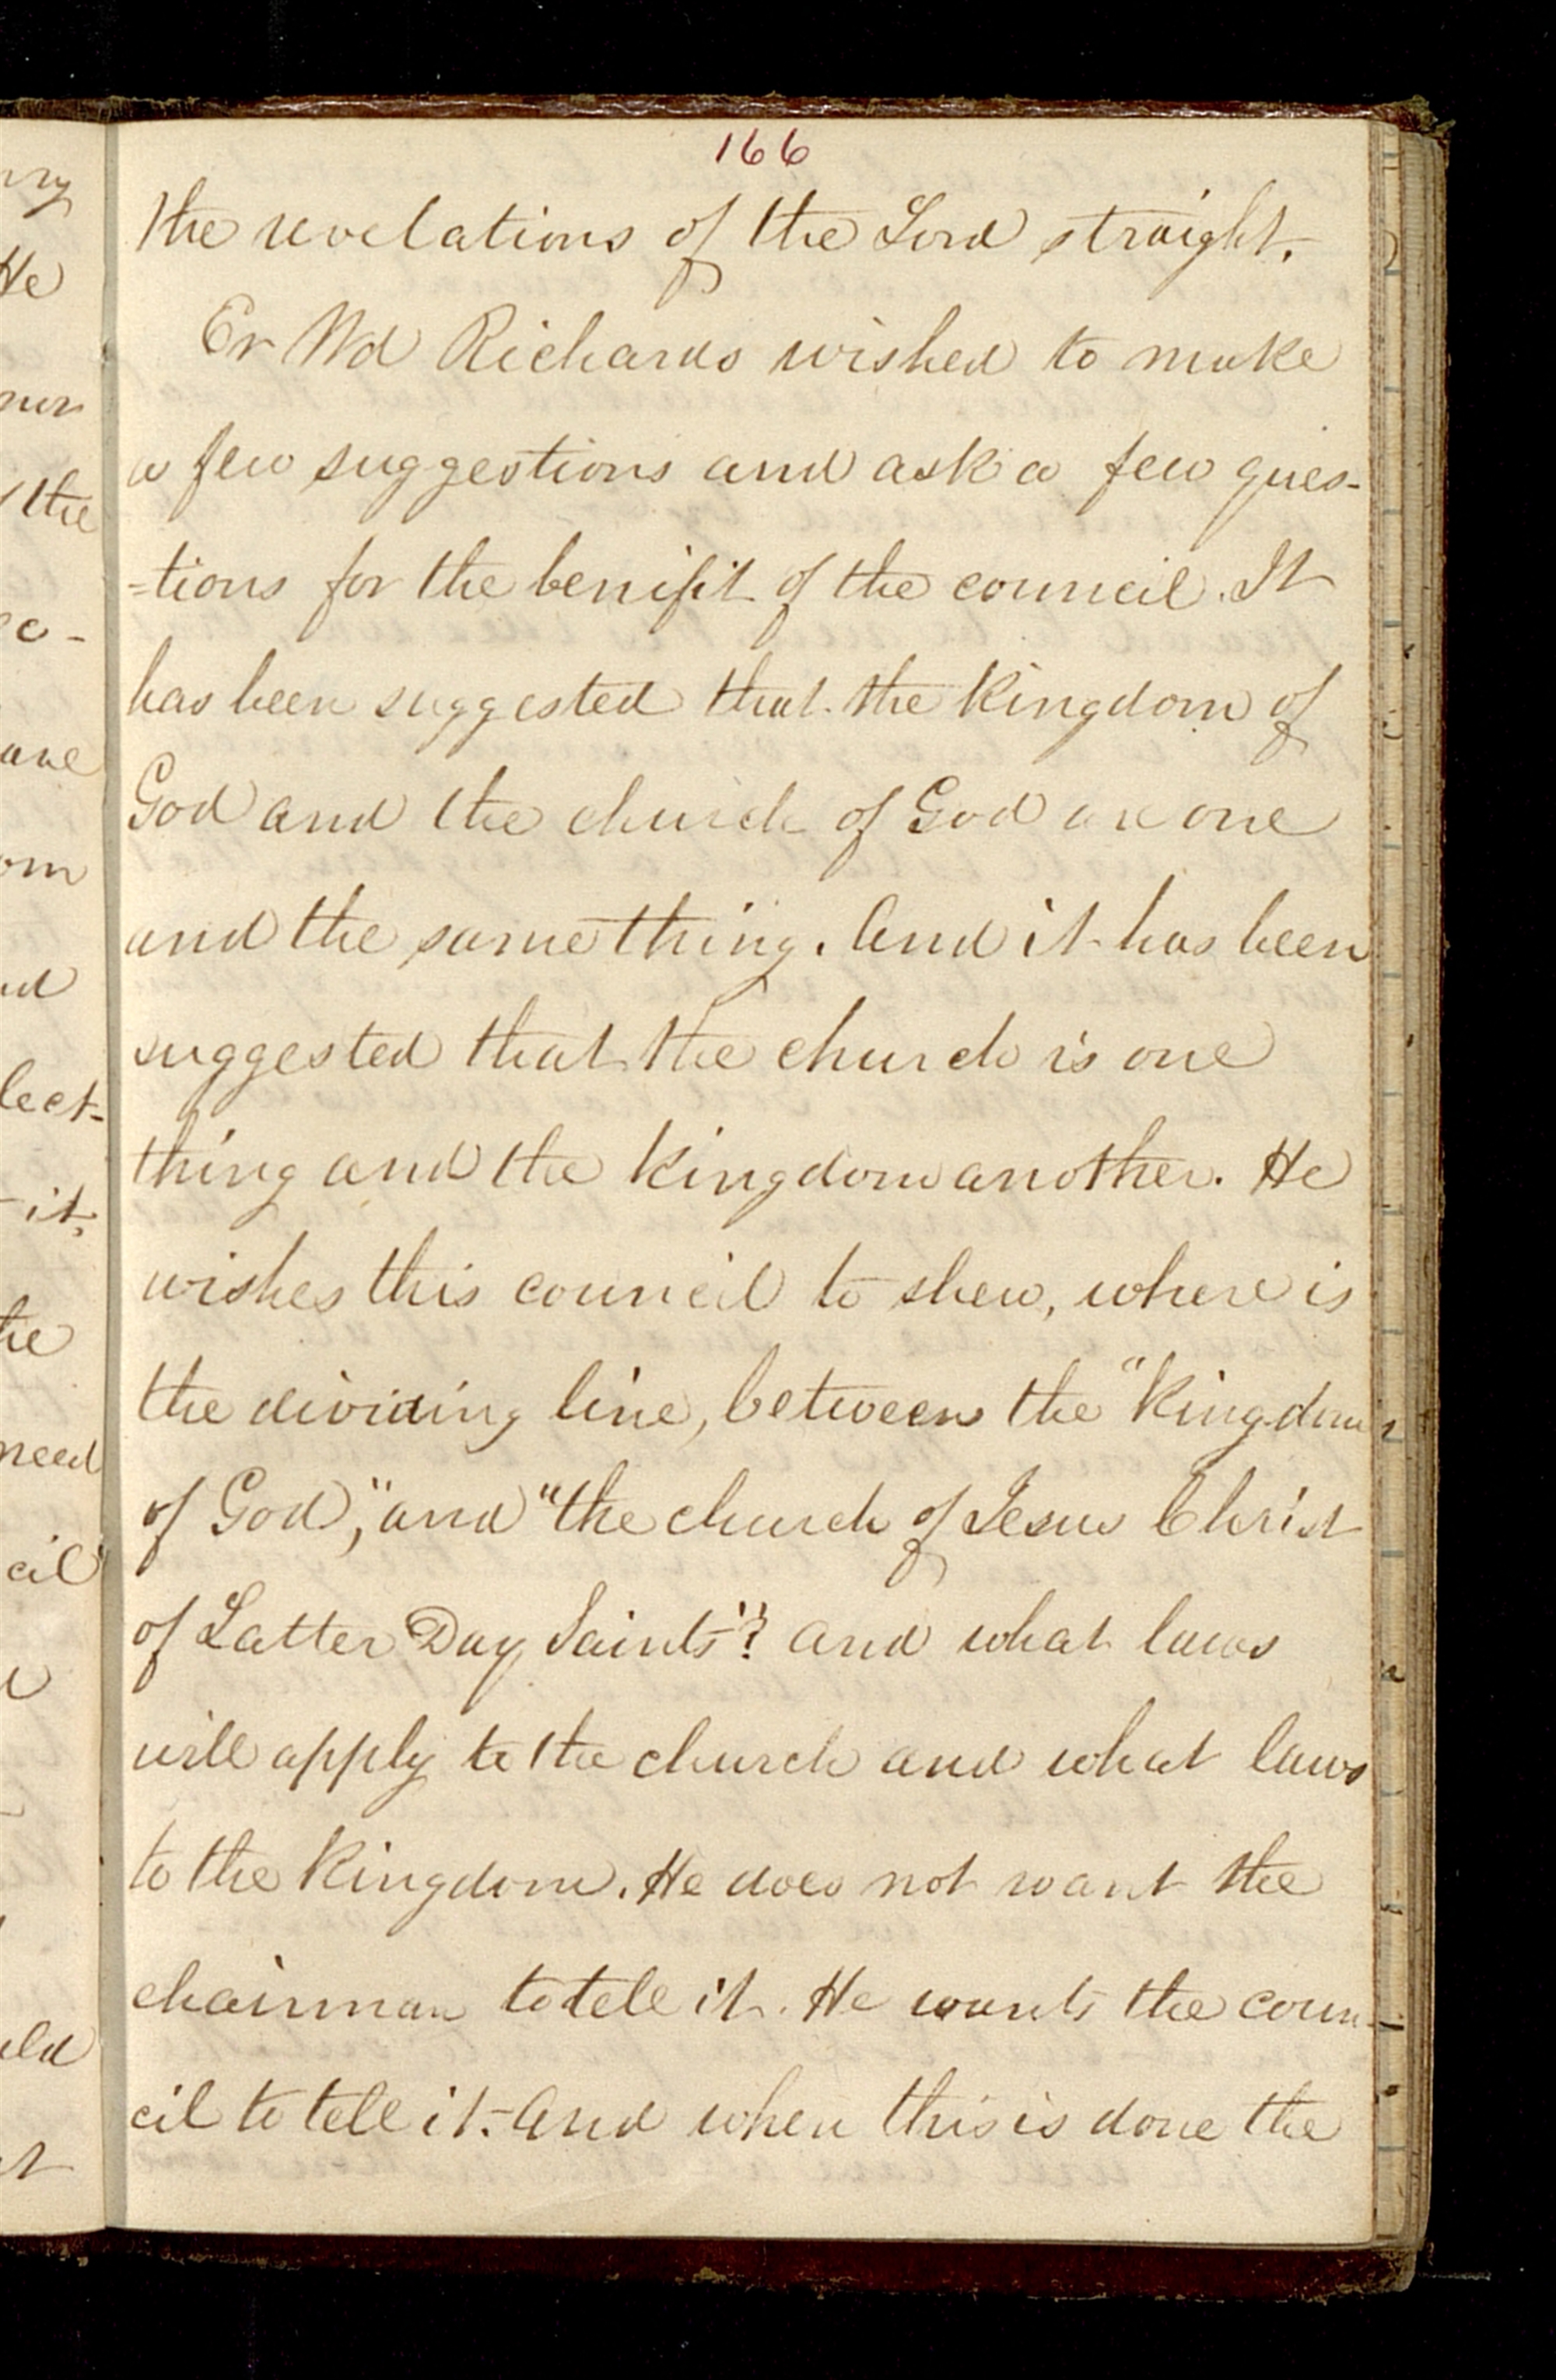 166
the revelations of the Lord straight.
Er Wd Richards wished to make
a few suggestions and ask a few ques-
=tions for the benifit of the council. It
has been suggested that the kingdom of
God and the church of God are one
and the same thing. And it has been
suggested that the church is one
thing and the kingdom another. He
wishes this council to shew, where is
the dividing line, between the "kingdom
of God," and "the church of Jesus Christ
of Latter Day Saints"? and what laws
will apply to the church and what laws
to the kingdom. He does not want the
chairman to tell it. He wants the coun-
cil to tell it. And when this is done the